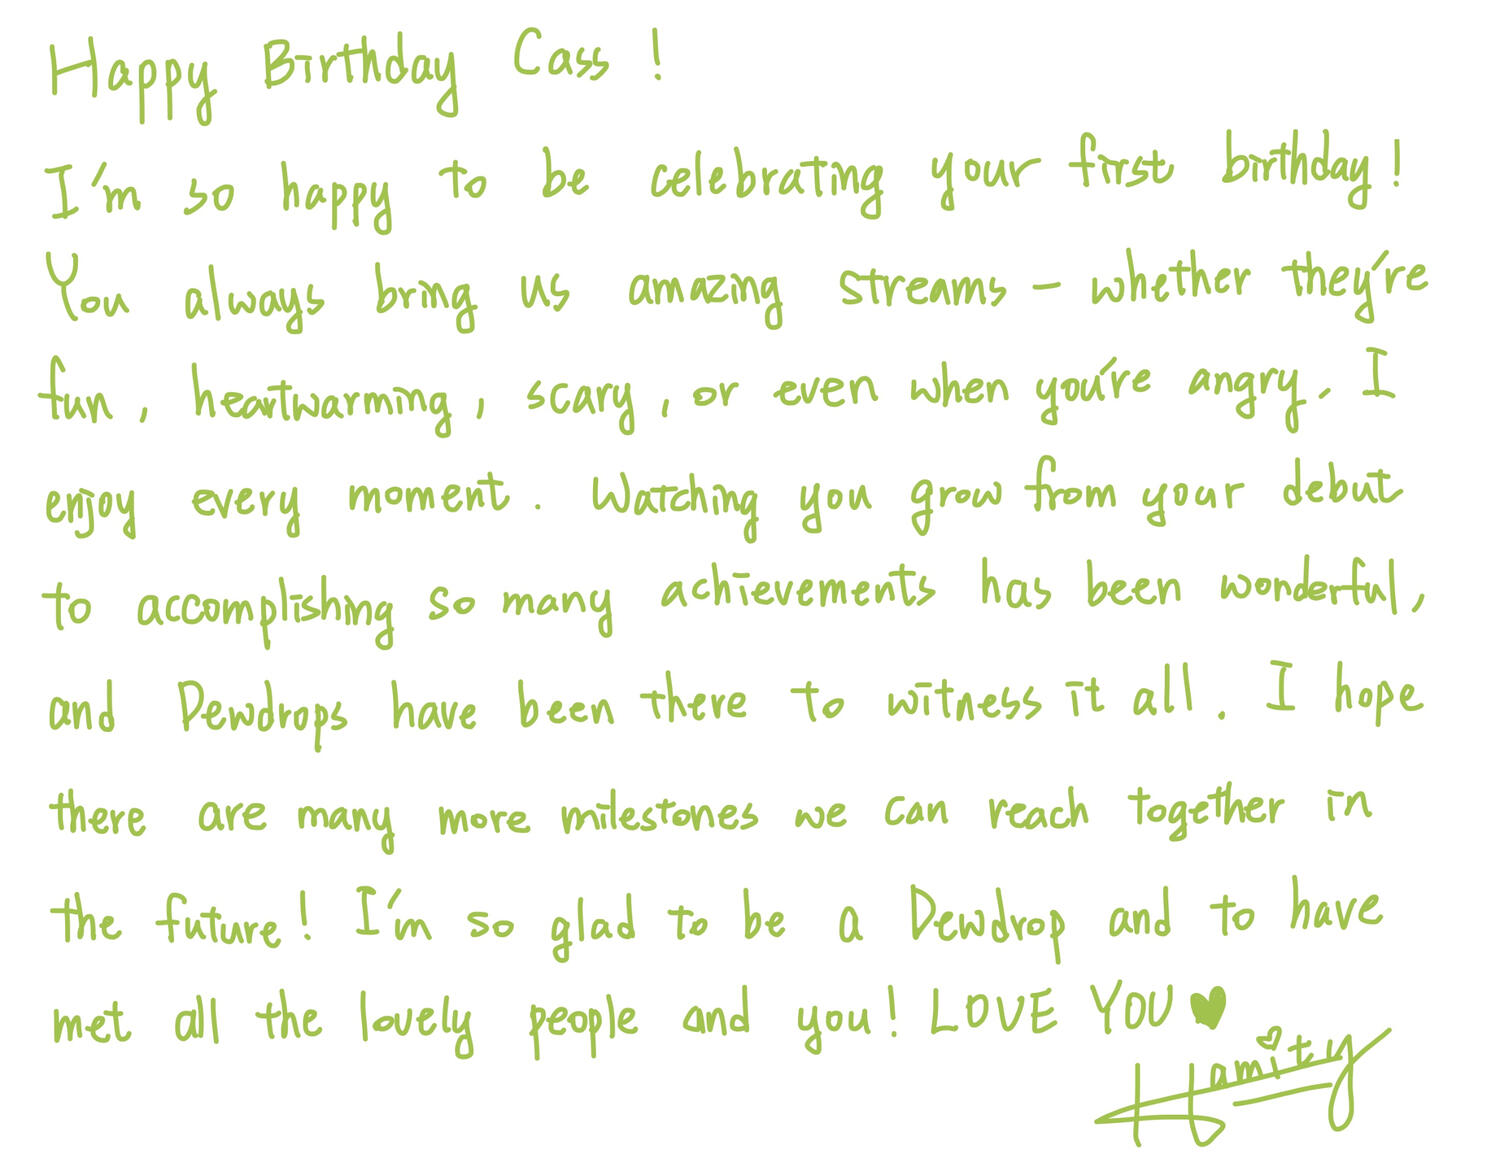 Happy Birthday Cass !
I'm so happy to be celebrating your first birthday!
You always bring us amazing streams – whether they're
fun, heartwarming, scary, or even when you're angry. I
enjoy every moment. Watching you grow from your debut
to accomplishing so many achievements has been wonderful,
and Dewdrops have been there to witness it all. I hope
there are many more milestones we can reach together in
the future! I'm so glad to be a Dewdrop and to have
met all the lovely people and you! LOVE YOU ♥
Hamity